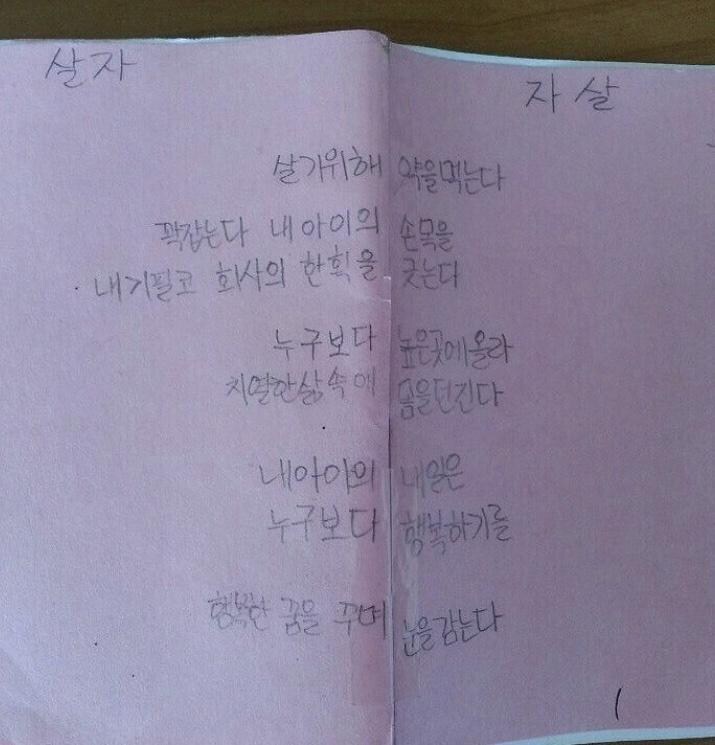 살자 자살
살기위해 약을먹는다
꽉잡는다 내아이의 손목을
내기필코 회사의 한획을 긋는다
누구보다 높은곳에올라
치열한삶속에 몸을던진다
내아이의 내일은
누구보다 행복하기를
행복한 꿈을 꾸며 눈을감는다